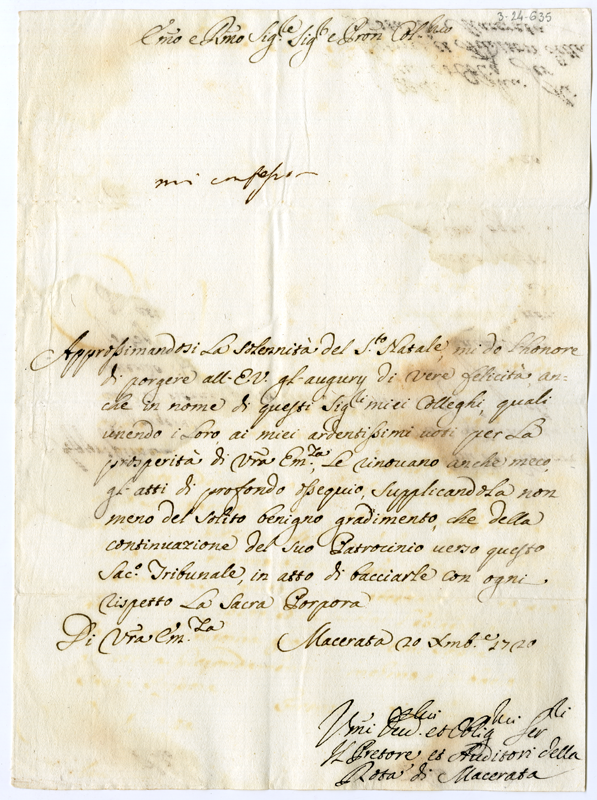 3-24-635
Emo e Rmo Sig.e Sig.e e Pron Col.mo
Approssimandosi La Solennità del S.to Natale, mi do l'honore
di porgere all'E.V. gl'augury di vere felicità an=
che in nome di questi Sig.ri miei Colleghi, quali
unendo i Loro, ai miei ardentissimi voti per La
prosperità di Vrã Em.za, Le rinovano anche meco,
gl'atti di profondo ossequio, Supplicandola non
meno del Solito benigno gradimento, che della
continuazione del Suo Patrocinio verso questo
Sac.o Tribunale, in atto di bacciarle con ogni
rispetto La Sacra Porpora
Di Vrã Em.za Macerata 20 Xmb.e 1720
Vmi et Oblig Ser
Il Pretore et Auditori della
Rota di Macerata